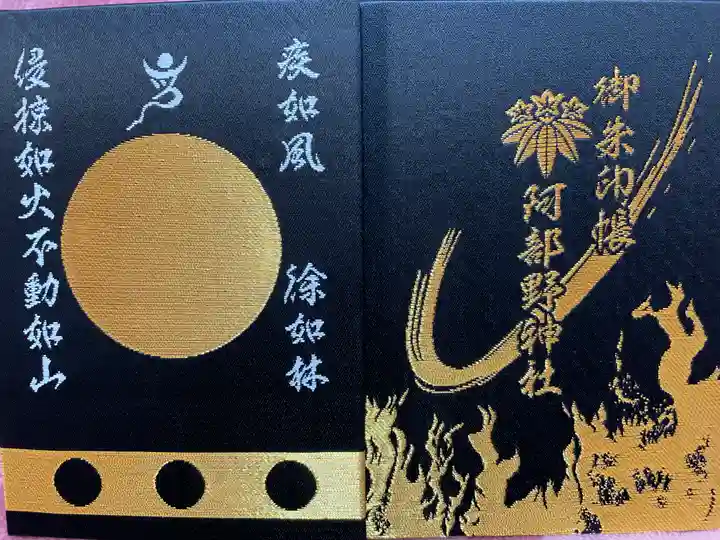 御朱印帳
阿部野神社
疾如風
徐如林
侵掠如火不動如山